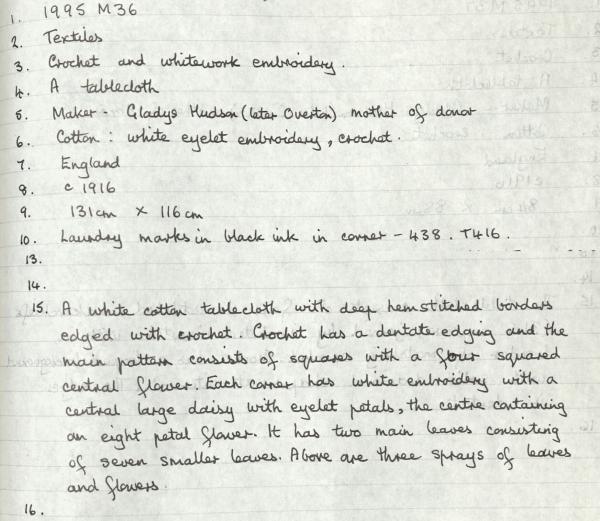 1. 1995 M36
2. Textiles
3. Crochet and whitework embroidery.
4. A tablecloth
5. Maker - Gladys Hudson (later Overton) mother of donor
6. Cotton : white eyelet embroidery, crochet.
7. England
8. c 1916
9. 131cm x 116cm
10. Laundry marks in black ink in corner - 438. T416.
13.
14.
15. A white cotton tablecloth with deep hemstitched borders
edged with crochet. Crochet has a dentate edging and the
main pattern consists of squares with a four squared
central flower. Each corner has white embroidery with a
central large daisy with eyelet petals, the centre containing
an eight petal flower. It has two main leaves consisting
of seven smaller leaves. Above are three sprays of leaves
and flowers.
16.